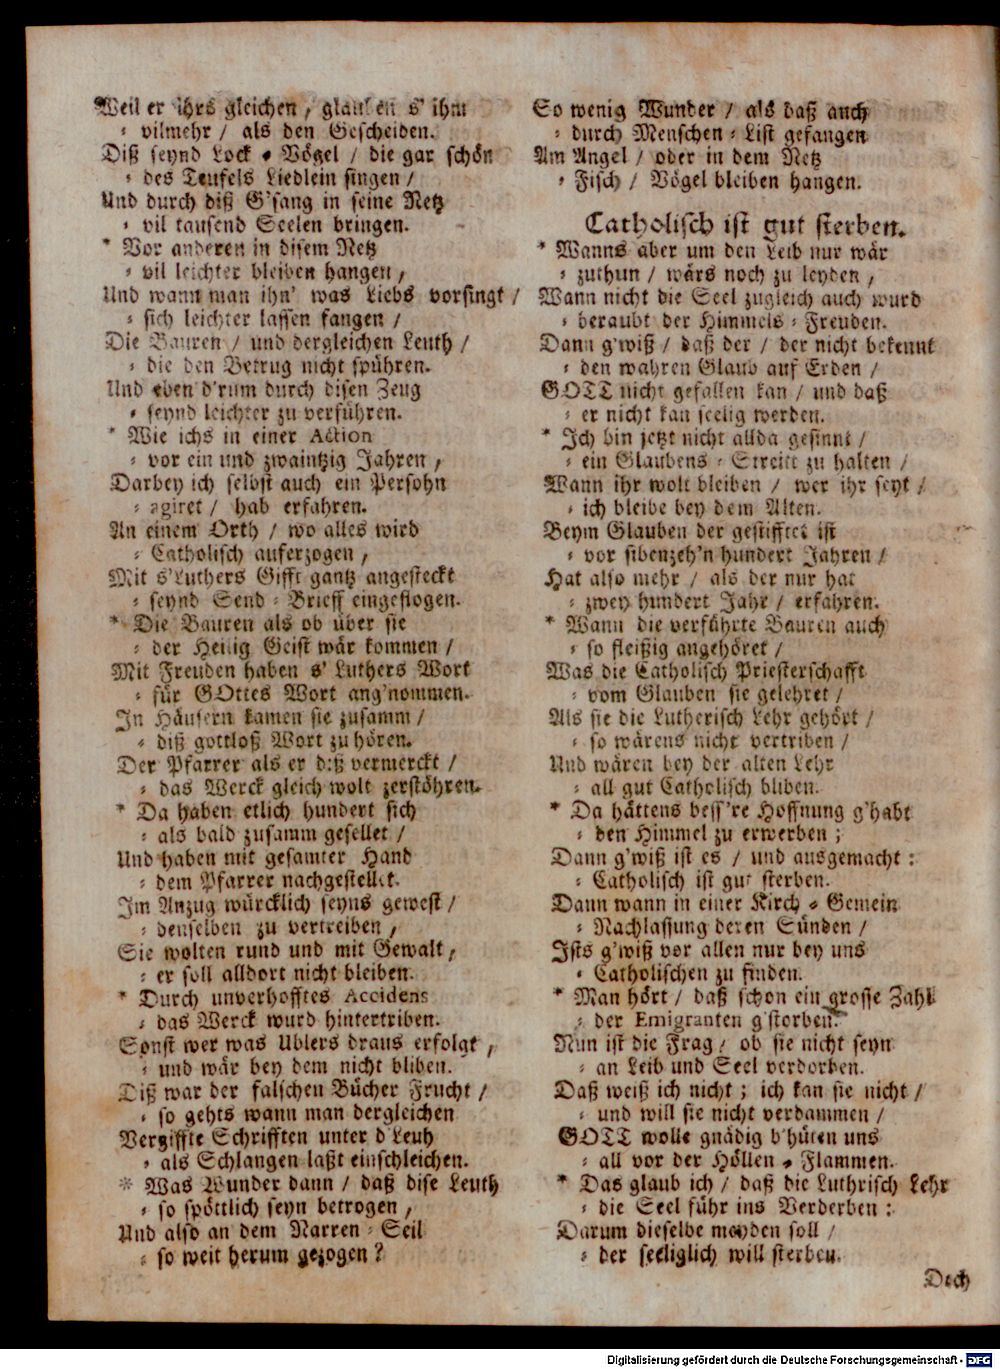 Weil er ihrs gleichen / glauben s' ihm
⸗ vilmehr / als den Gescheiden.
Diß seynd Lock ⸗ Vögel / die gar schön
⸗ des Teufels Liedlein singen /
Und durch diß G'sang in seine Netz
⸗ vil tausend Seelen bringen.
* Vor anderen in disem Netz
⸗ vil leichter bleiben hangen /
Und wann man ihn' was Liebs vorsingt /
⸗ sich leichter lassen fangen /
Die Bauren / und dergleichen Leuth /
⸗ die den Betrug nicht spühren.
Und eben d'rum durch disen Zeug
⸗ seynd leichter zu verführen.
* Wie ichs in einer Action
⸗ vor ein und zwaintzig Jahren /
Darbey ich selbst auch ein Persohn
⸗ agiret / hab erfahren.
An einem Orth / wo alles wird
⸗ Catholisch auferzogen /
Mit s'Luthers Gifft gantz angesteckt
⸗ seynd Send ⸗ Brieff eingeflogen.
* Die Bauren als ob über sie
⸗ der Heilig Geist wär kommen /
Mit Freuden haben s' Luthers Wort
⸗ für GOttes Wort ang'nommen.
In Häusern kamen sie zusamm /
⸗ diß gottloß Wort zu hören.
Der Pfarrer als er diß vermerckt /
⸗ das Werck gleich wolt zerstöhren.
* Da haben etlich hundert sich
⸗ als bald zusamm gesellet /
Und haben mit gesamter Hand
⸗ dem Pfarrer nachgestellet.
Im Anzug würcklich seyns gewest /
⸗ denselben zu vertreiben /
Sie wolten rund und mit Gewalt /
⸗ er soll alldort nicht bleiben.
* Durch unverhofftes Accidens
⸗ das Werck wurd hintertriben.
Sonst wer was Ublers draus erfolgt /
⸗ und wär bey dem nicht bliben.
Diß war der falschen Bücher Frucht /
⸗ so gehts wann man dergleichen
Vergiffte Schrifften unter d'Leuh
⸗ als Schlangen laßt einschleichen.
* Was Wunder dann / daß dise Leuth
⸗ so spöttlich seyn betrogen /
Und also an dem Narren ⸗ Seil
⸗ so weit herum gezogen?
So wenig Wunder / als daß auch
⸗ durch Menschen ⸗ List gefangen
Am Angel / oder in dem Netz
⸗ Fisch / Vögel bleiben hangen.
Catholisch ist gut sterben.
* Wanns aber um den Leib nur wär
⸗ zuthun / wärs noch zu leyden /
Wann nicht die Seel zugleich auch wurd
⸗ beraubt der Himmels ⸗ Freuden.
Dann g'wiß / daß der / der nicht bekennt
⸗ den wahren Glaub auf Erden /
GOTT nicht gefallen kan / und daß
⸗ er nicht kan seelig werden.
* Ich bin jetzt nicht allda gesinnt /
⸗ ein Glaubens ⸗ Streitt zu halten /
Wann ihr wolt bleiben / wer ihr seyt /
⸗ ich bleibe bey dem Alten.
Beym Glauben der gestifftet ist
⸗ vor sibenzeh'n hundert Jahren /
Hat also mehr / als der nur hat
⸗ zwey hundert Jahr / erfahren.
* Wann die verführte Bauren auch
⸗ so fleißig angehöret /
Was die Catholisch Priesterschafft
⸗ vom Glauben sie gelehret /
Als sie die Lutherisch Lehr gehört /
⸗ so wärens nicht vertriben /
Und wären bey der alten Lehr
⸗ all gut Catholisch bliben.
* Da hättens bess're Hoffnung g'habt
⸗ den Himmel zu erwerben ;
Dann g'wiß ist es / und ausgemacht :
⸗ Catholisch ist gut sterben.
Dann wann in einer Kirch ⸗ Gemein
⸗ Nachlassung deren Sünden /
Ists g'wiß vor allen nur bey uns
⸗ Catholischen zu finden.
* Man hört / daß schon ein grosse Zahl
⸗ der Emigranten g'storben.
Nun ist die Frag / ob sie nicht seyn
⸗ an Leib und Seel verdorben.
Daß weiß ich nicht ; ich kan sie nicht /
⸗ und will sie nicht verdammen /
GOTT wolle gnädig b'hüten uns
⸗ all vor der Höllen ⸗ Flammen.
* Das glaub ich / daß die Luthrisch Lehr
⸗ die Seel führ ins Verderben :
Darum dieselbe meyden soll /
⸗ der seeliglich will sterben.
Doch
Digitalisierung gefördert durch die Deutsche Forschungsgemeinschaft - DFG